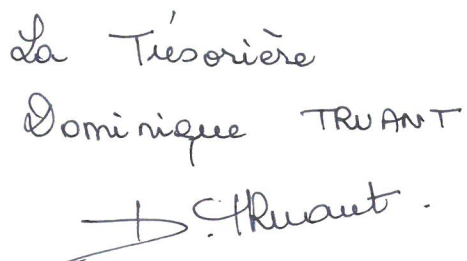 La Trésorière
Dominique TRUANT
D. Truant.